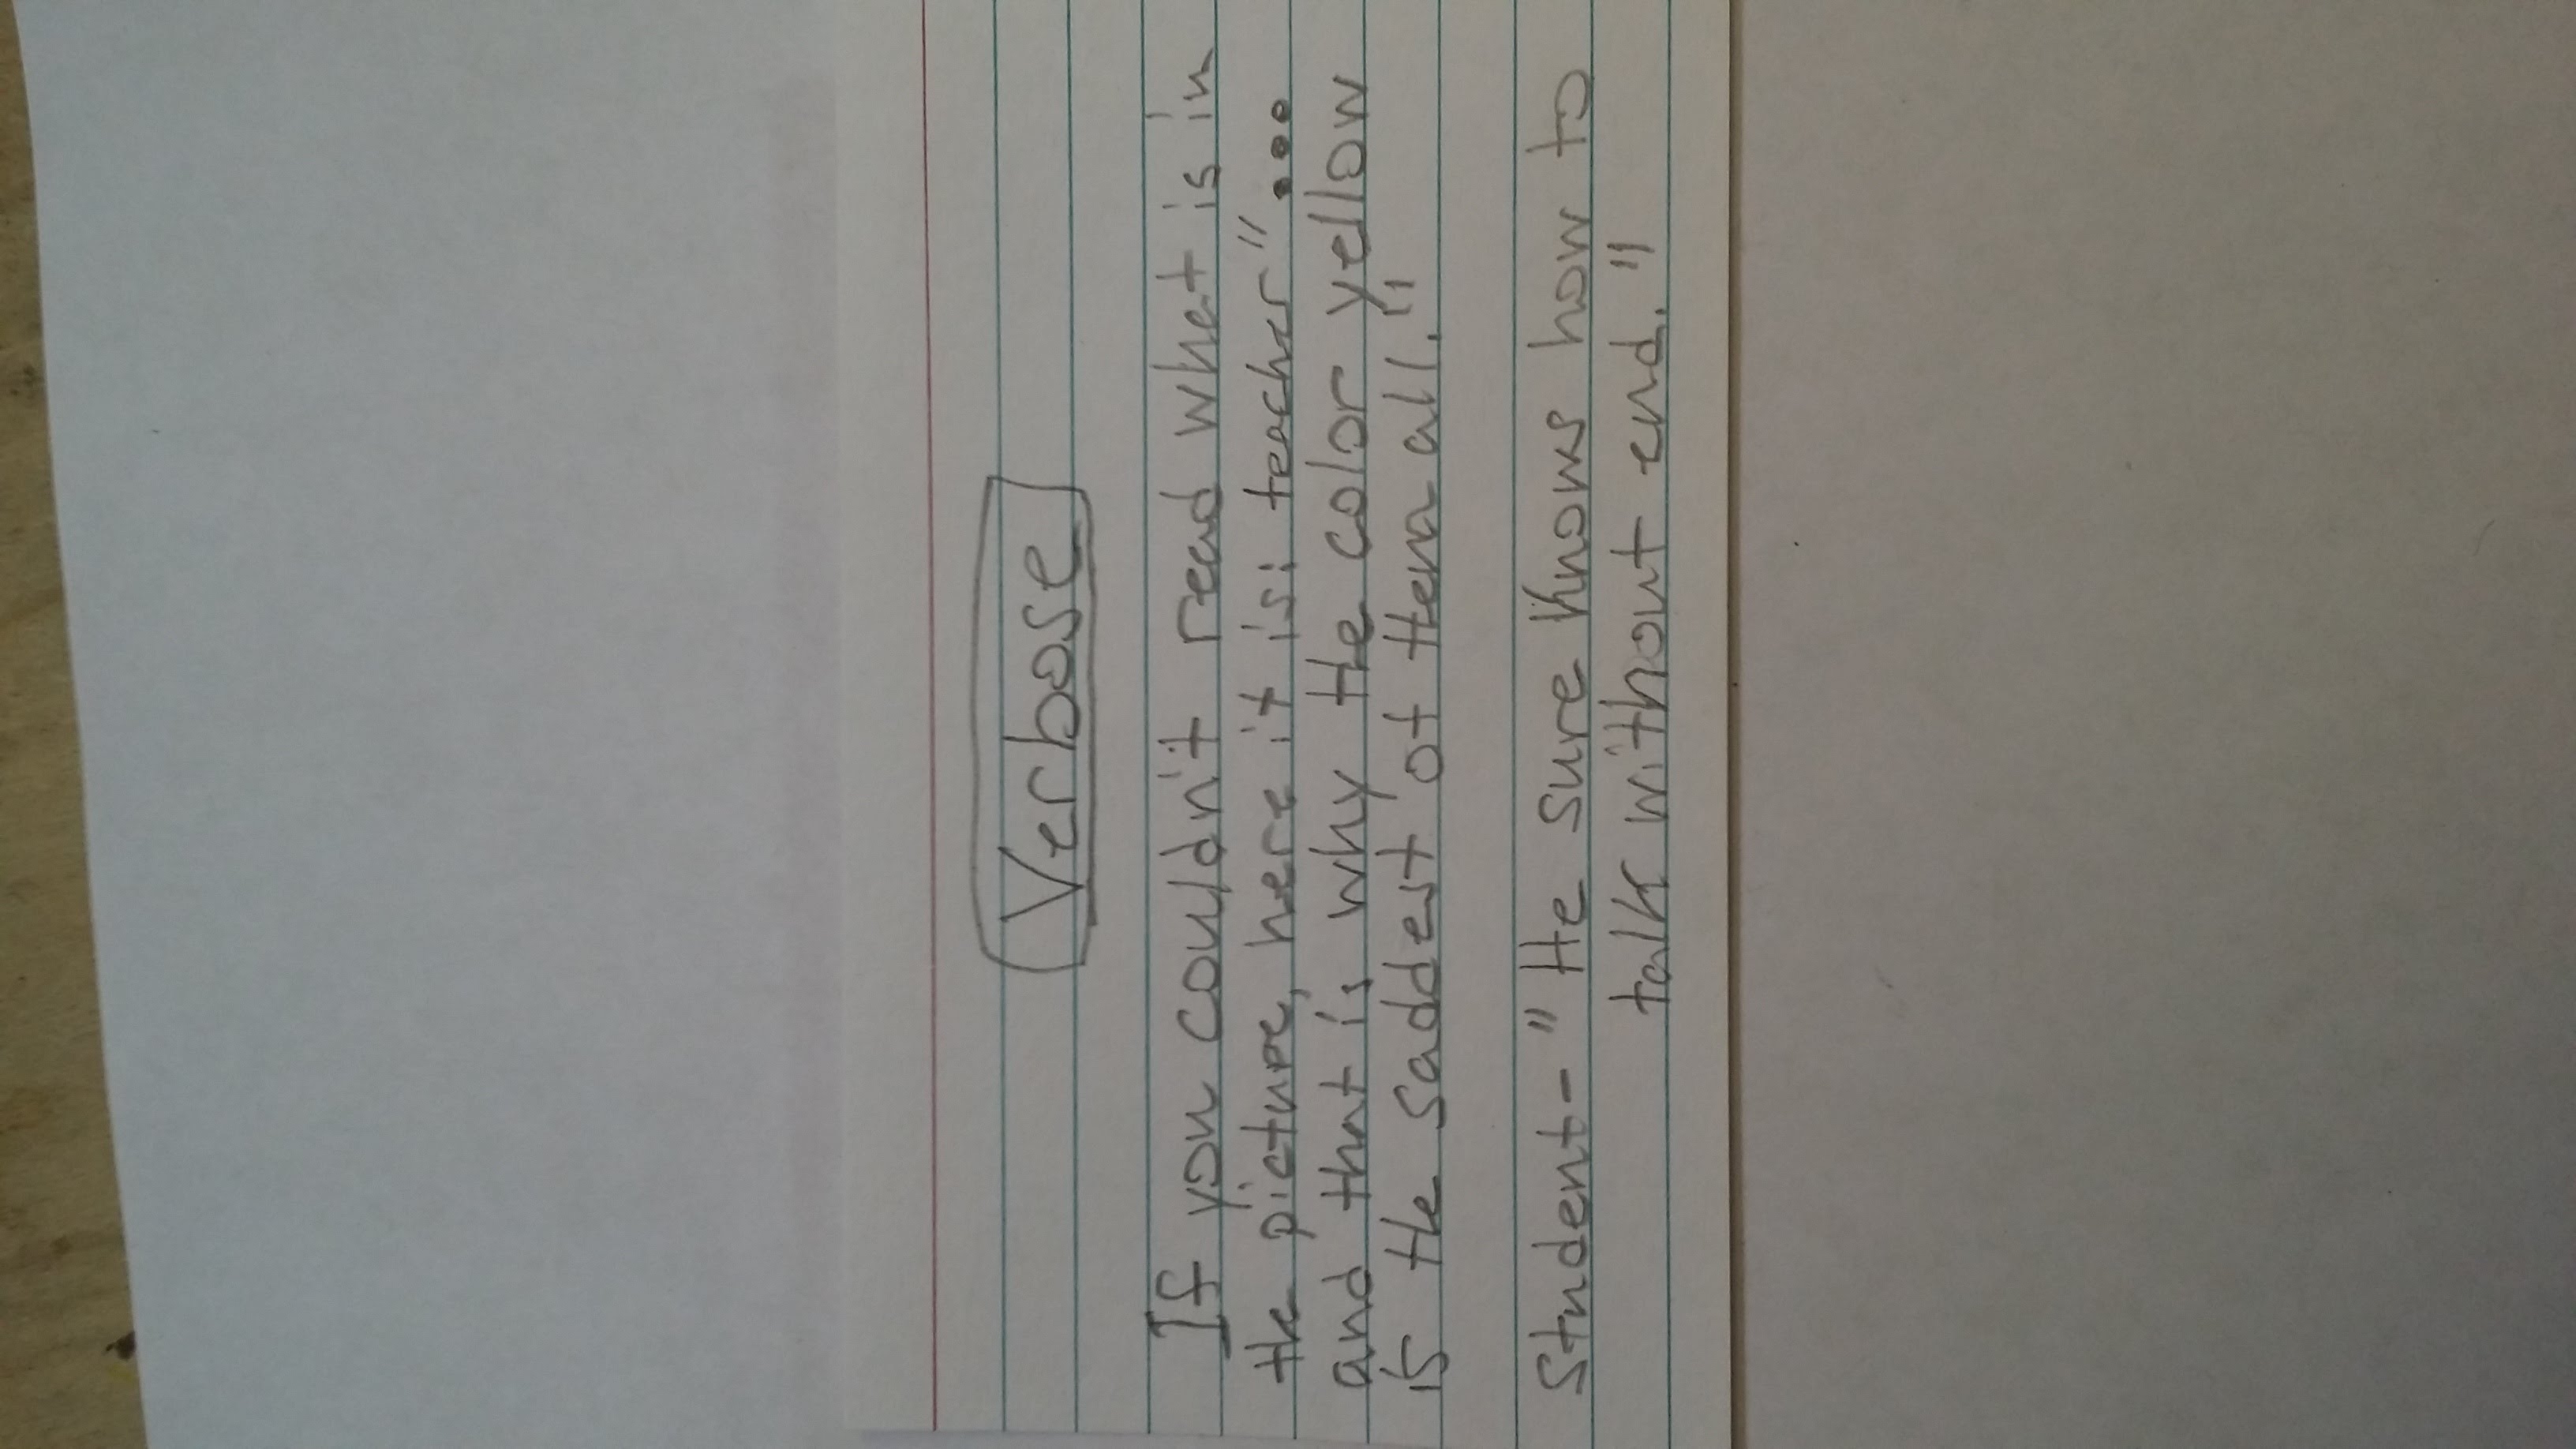 Verbose
If you couldn't read what is in
the picture, here it is: teacher" ...
and that is why the color yellow
is the saddest of them all."
Student- "He sure knows how to
talk without end."